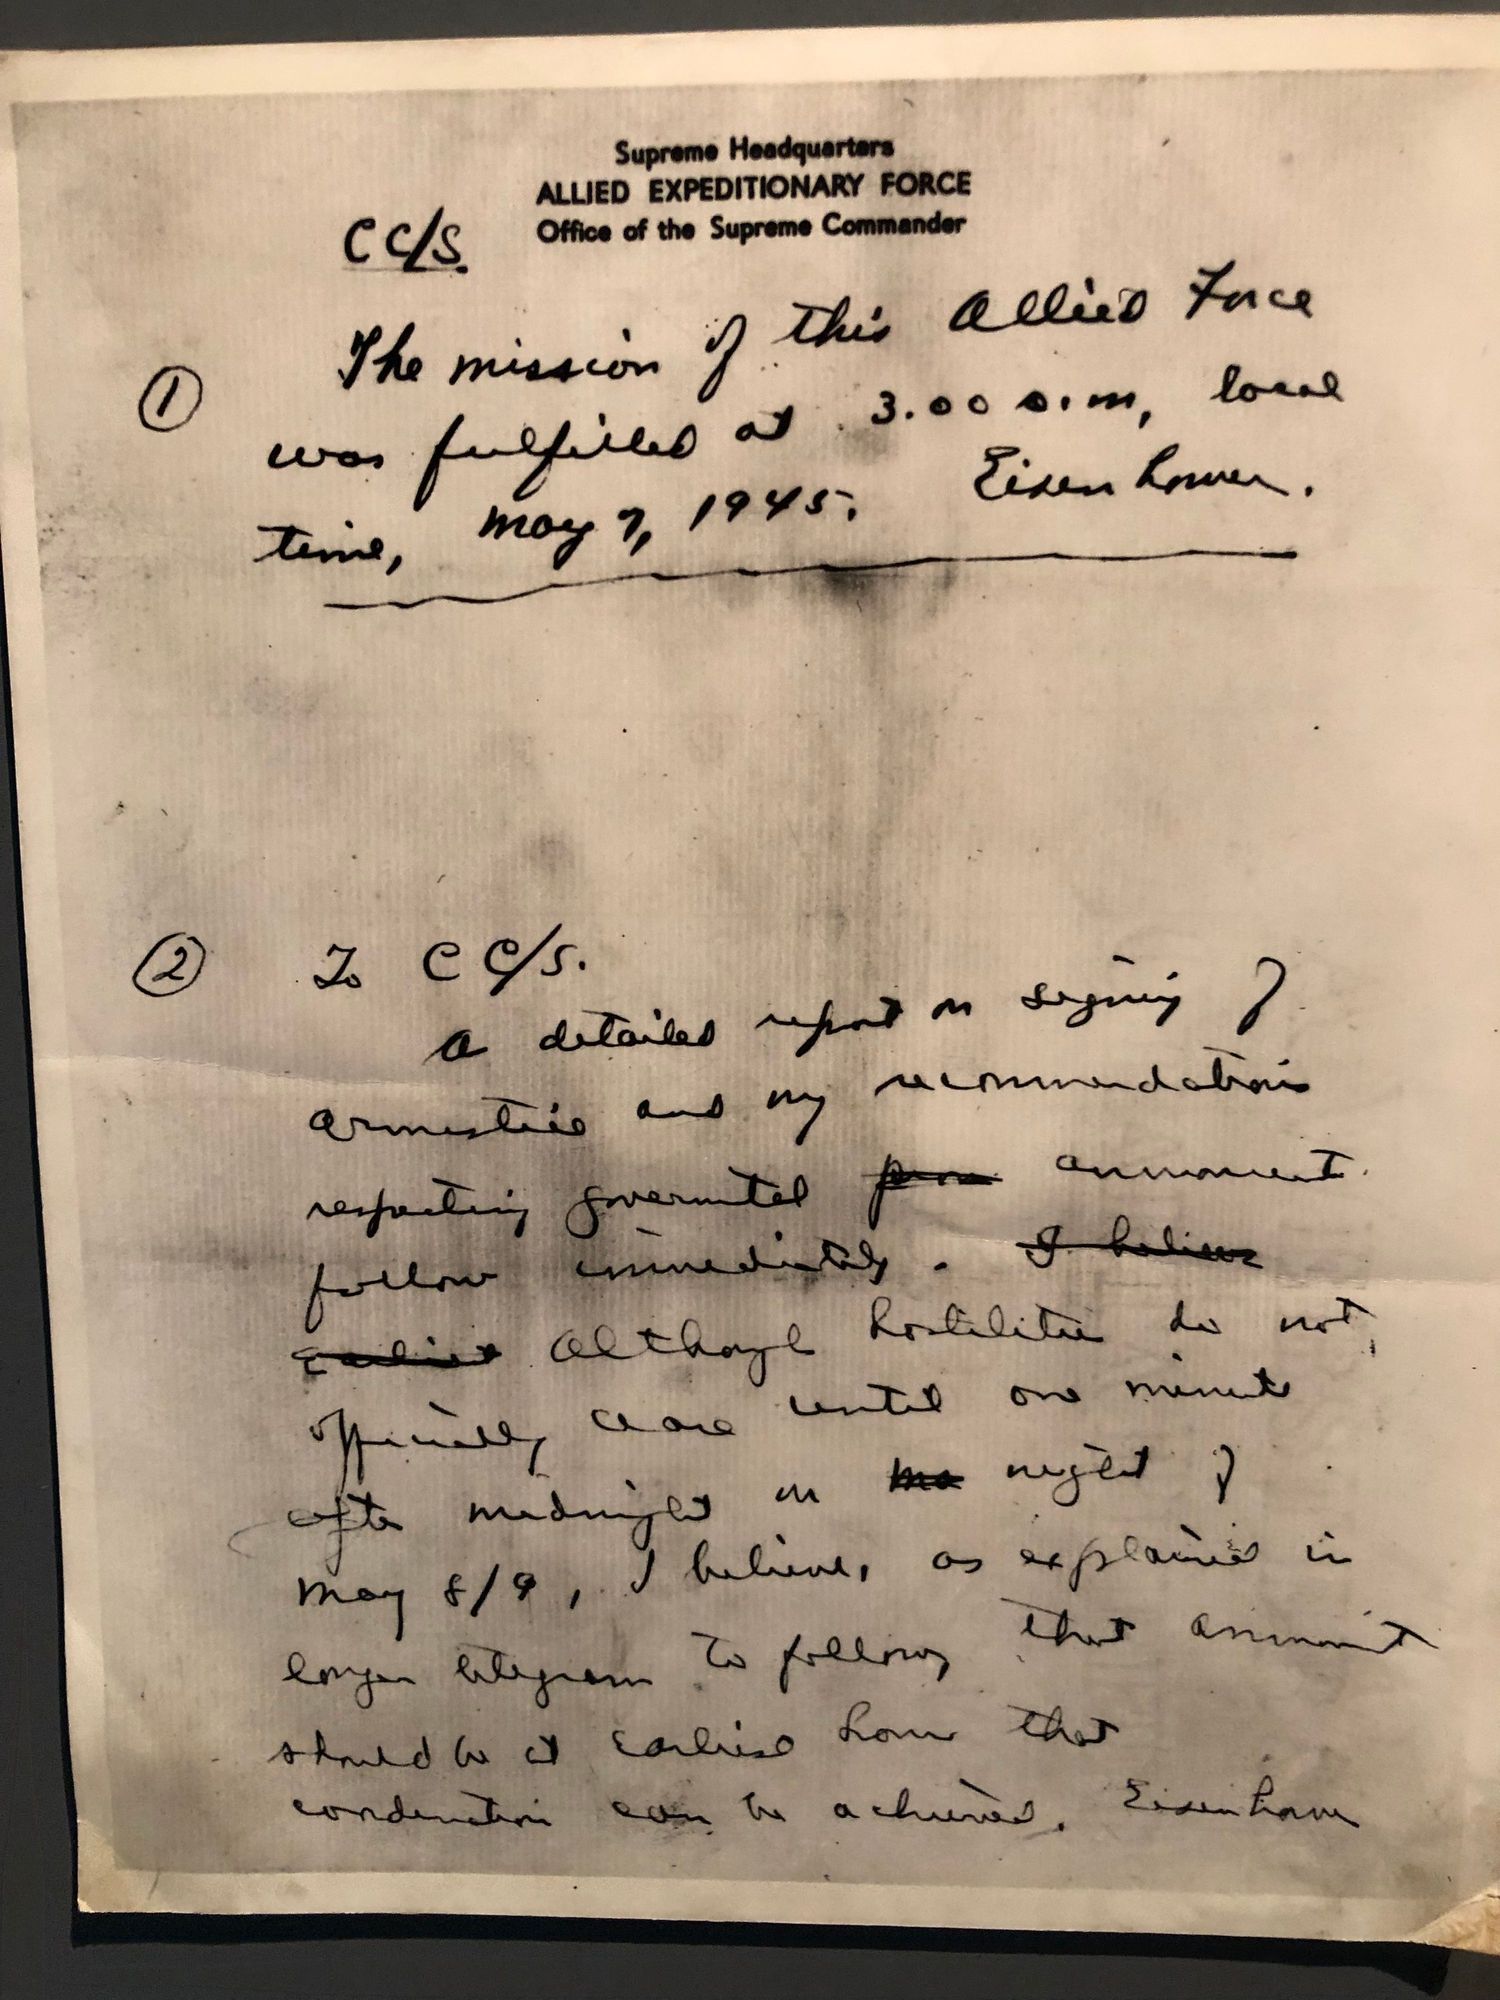 Supreme Headquarters
ALLIED EXPEDITIONARY FORCE
Office of the Supreme Commander
C C/S.
① The mission of this Allied Force
was fulfilled at 3.00 a.m, local
time, May 7, 1945. Eisenhower.
② To C C/S.
A detailed report on signing of
armistice and my recommendations
respecting govermntal announcmt
follow immediately. I believe
earliest Although hostilities do not
officially cease until one minute
after midnight on night of
May 8/9, I believe, as explained in
longer telegram to follow, that announcmt
should be at earliest hour that
coordination can be achieved. Eisenhower